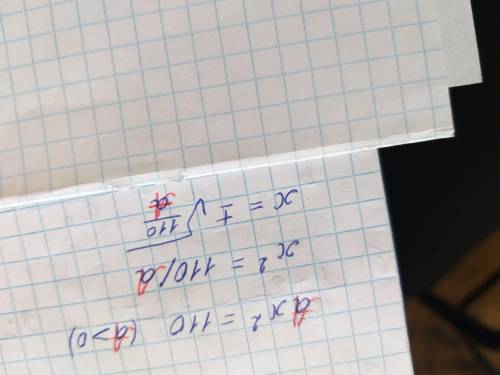 ax² = 110 (a>0)
x² = 110/a
x = ± √(110/a)